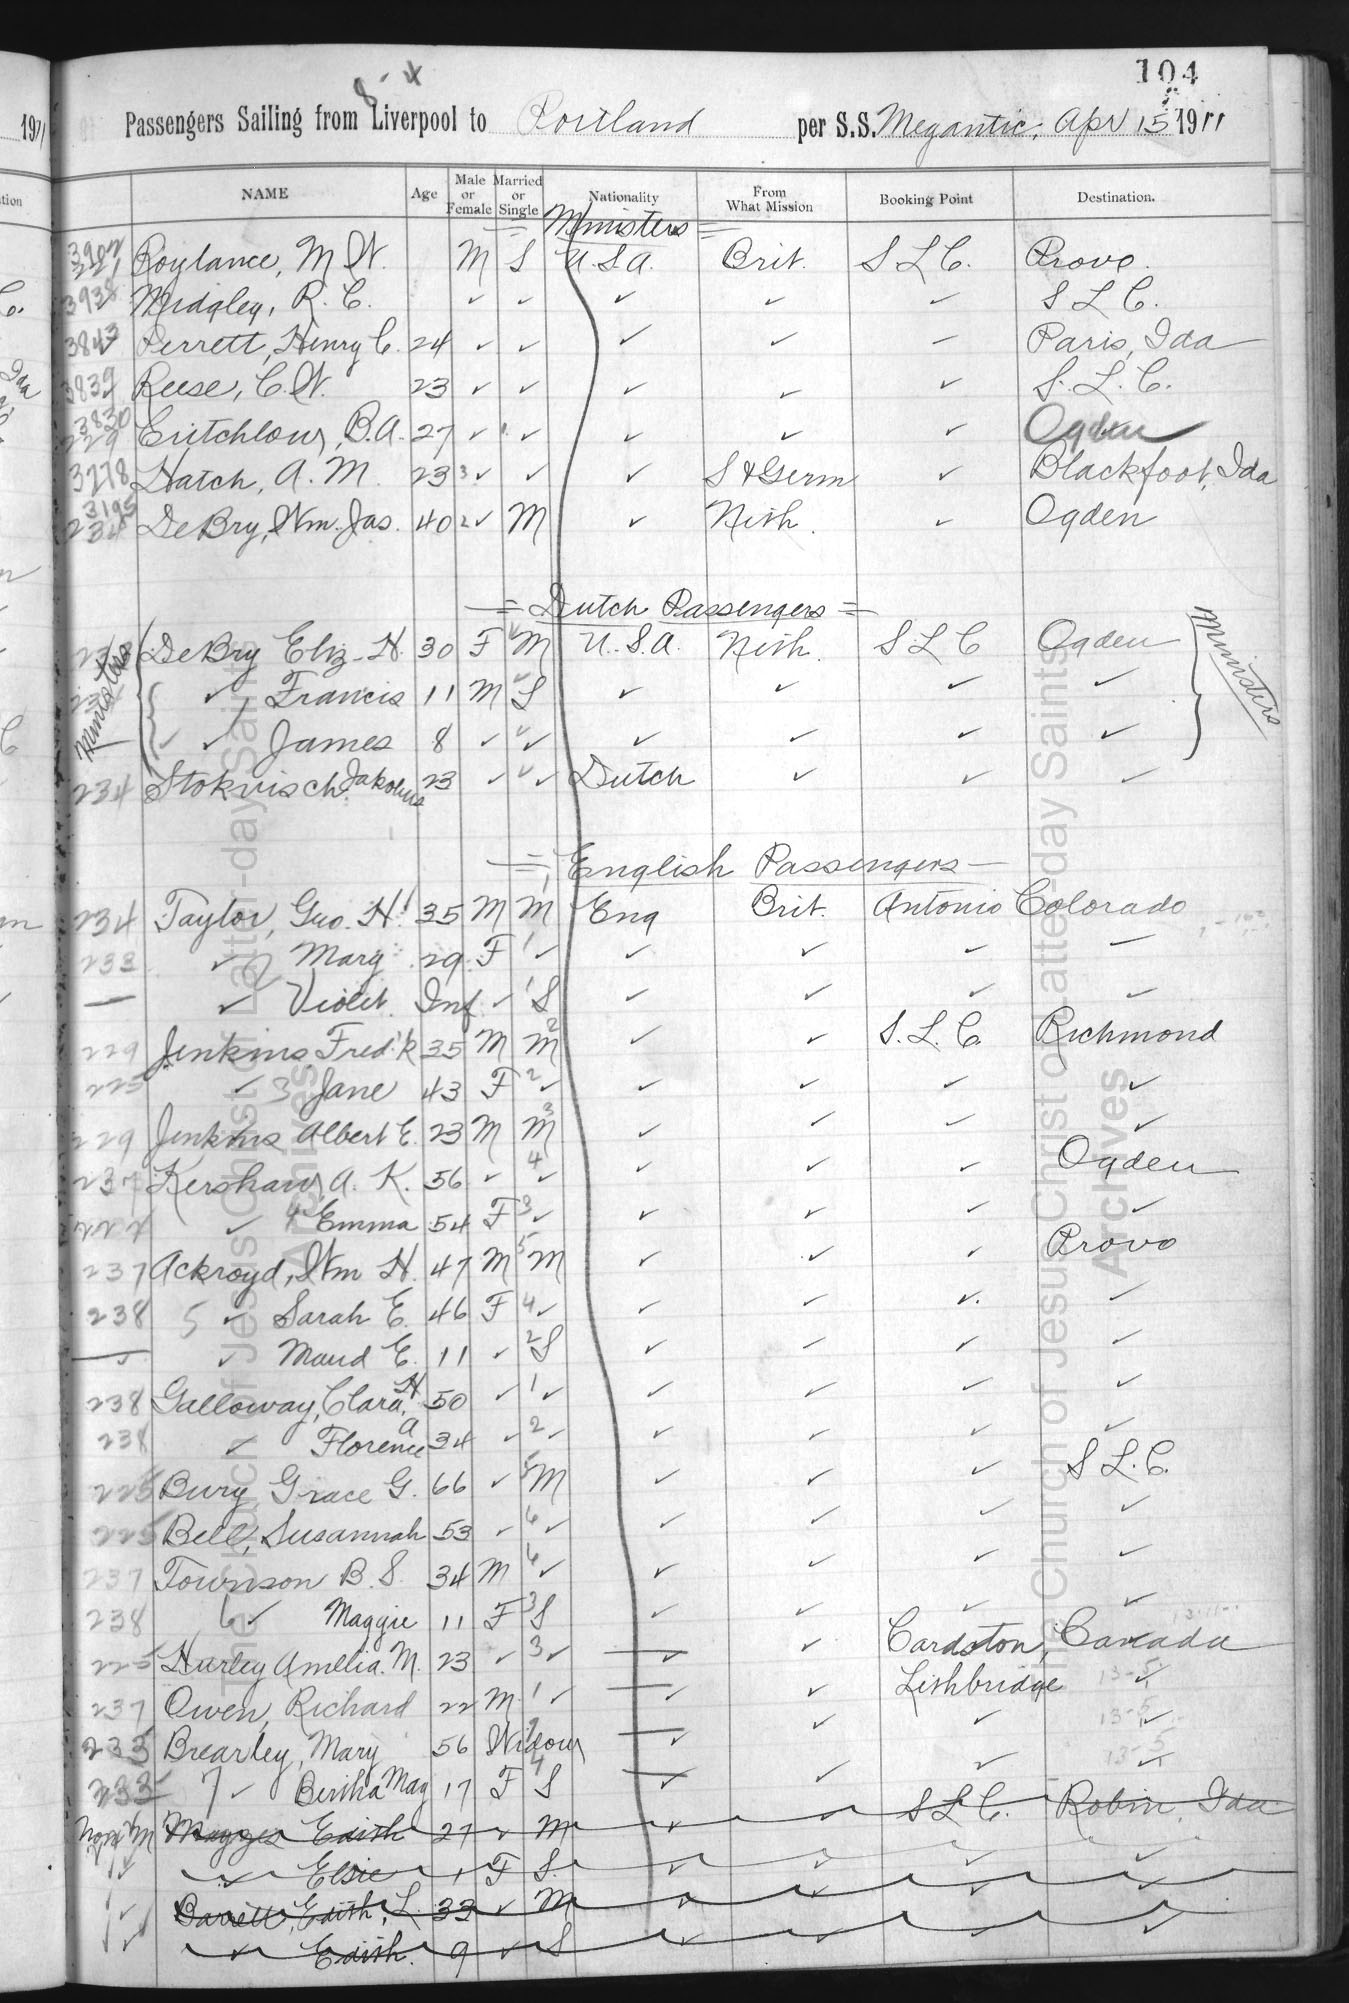 104
8-4
Passengers Sailing from Liverpool to Portland per S.S. Megantic, Apr 15 1911
NAME Age Male or Female Married or Single Nationality From What Mission Booking Point Destination.
= Ministers =
Roylance, M W. M S U.S.A. Brit. S L C. Provo.
3938 Midgley, R. C. ✓ ✓ ✓ ✓ ✓ S L C.
3843 Perrett, Henry C. 24 ✓ ✓ ✓ ✓ – Paris, Ida
3839 Reese, C. W. 23 ✓ ✓ ✓ ✓ ✓ S. L. C.
3830 229 Critchlow, B.A. 27 ✓ ✓ ✓ ✓ ✓ Ogden
3278 Hatch, A. M. 23 3 ✓ ✓ ✓ S & Germ ✓ Blackfoot, Ida
3195 234 DeBry, Wm. Jas. 40 2 ✓ M ✓ Neth. ✓ Ogden
= Dutch Passengers =
Ministers DeBry Eliz. H. 30 F M U.S.A. Neth. S L C Ogden Ministers
✓ Francis 11 M S ✓ ✓ ✓ ✓
✓ ✓ James 8 ✓ ✓ ✓ ✓ ✓ ✓
234 Stokvisch Jakobus 23 ✓ ✓ Dutch ✓ ✓ ✓
= English Passengers –
234 Taylor, Geo. H. 35 M M 1 Eng Brit. Antonio Colorado
233 ✓ 2 Mary 29 F 1 ✓ ✓ ✓ ✓ –
— ✓ Violet. Inf. ✓ 1 S ✓ ✓ ✓ ✓
229 Jenkins, Fred'k 35 M M 2 ✓ ✓ S. L. C. Richmond
225 ✓ 3 Jane 43 F 2 ✓ ✓ ✓ ✓ ✓
229 Jenkins Albert E. 23 M M 3 ✓ ✓ ✓ ✓
237 Kershaw, A. K. 56 ✓ 4 ✓ ✓ ✓ ✓ Ogden
✓ 4 Emma 54 F 3 ✓ ✓ ✓ ✓ ✓
237 Ackroyd, Wm H. 47 M 5 M ✓ ✓ ✓ Provo
238 5 ✓ Sarah E. 46 F 4 ✓ ✓ ✓ ✓ ✓
— ✓ Maud E. 11 ✓ 2 S ✓ ✓ ✓ ✓
238 Galloway, Clara H. 50 ✓ 1 ✓ ✓ ✓ ✓ ✓
238 ✓ Florence A 34 ✓ 2 ✓ ✓ ✓ ✓ ✓
225 Bury, Grace G. 66 ✓ 5 M ✓ ✓ ✓ S L. C.
225 Bell, Susannah 53 ✓ 6 ✓ ✓ ✓ ✓ ✓
237 Townson B. S. 34 M 6 ✓ ✓ ✓ ✓ ✓
238 6 ✓ Maggie 11 F 3 S ✓ ✓ ✓ ✓
225 Hurley Amelia. M. 23 ✓ 3 ✓ ✓ ✓ Cardston, Canada
237 Owen, Richard 22 M 1 ✓ ✓ ✓ Lethbridge 13-5 ✓
233 Brearley, Mary 56 Widow ✓ ✓ ✓ 13-5 ✓
233 7 ✓ Bertha May 17 F 4 S ✓ ✓ ✓ 13-5 ✓
Maggs Edith 27 ✓ M ✓ ✓ S L C. Robin, Ida
✓ ✓ Elsie 1 F S. ✓ ✓ ✓ ✓
✓ Barrett, Edith, L. 33 ✓ M ✓ ✓ ✓ ✓
✓ ✓ Edith. 9 ✓ S ✓ ✓ ✓ ✓
The Church of Jesus Christ of Latter-day Saints
Archives
The Church of Jesus Christ of Latter-day Saints
Archives